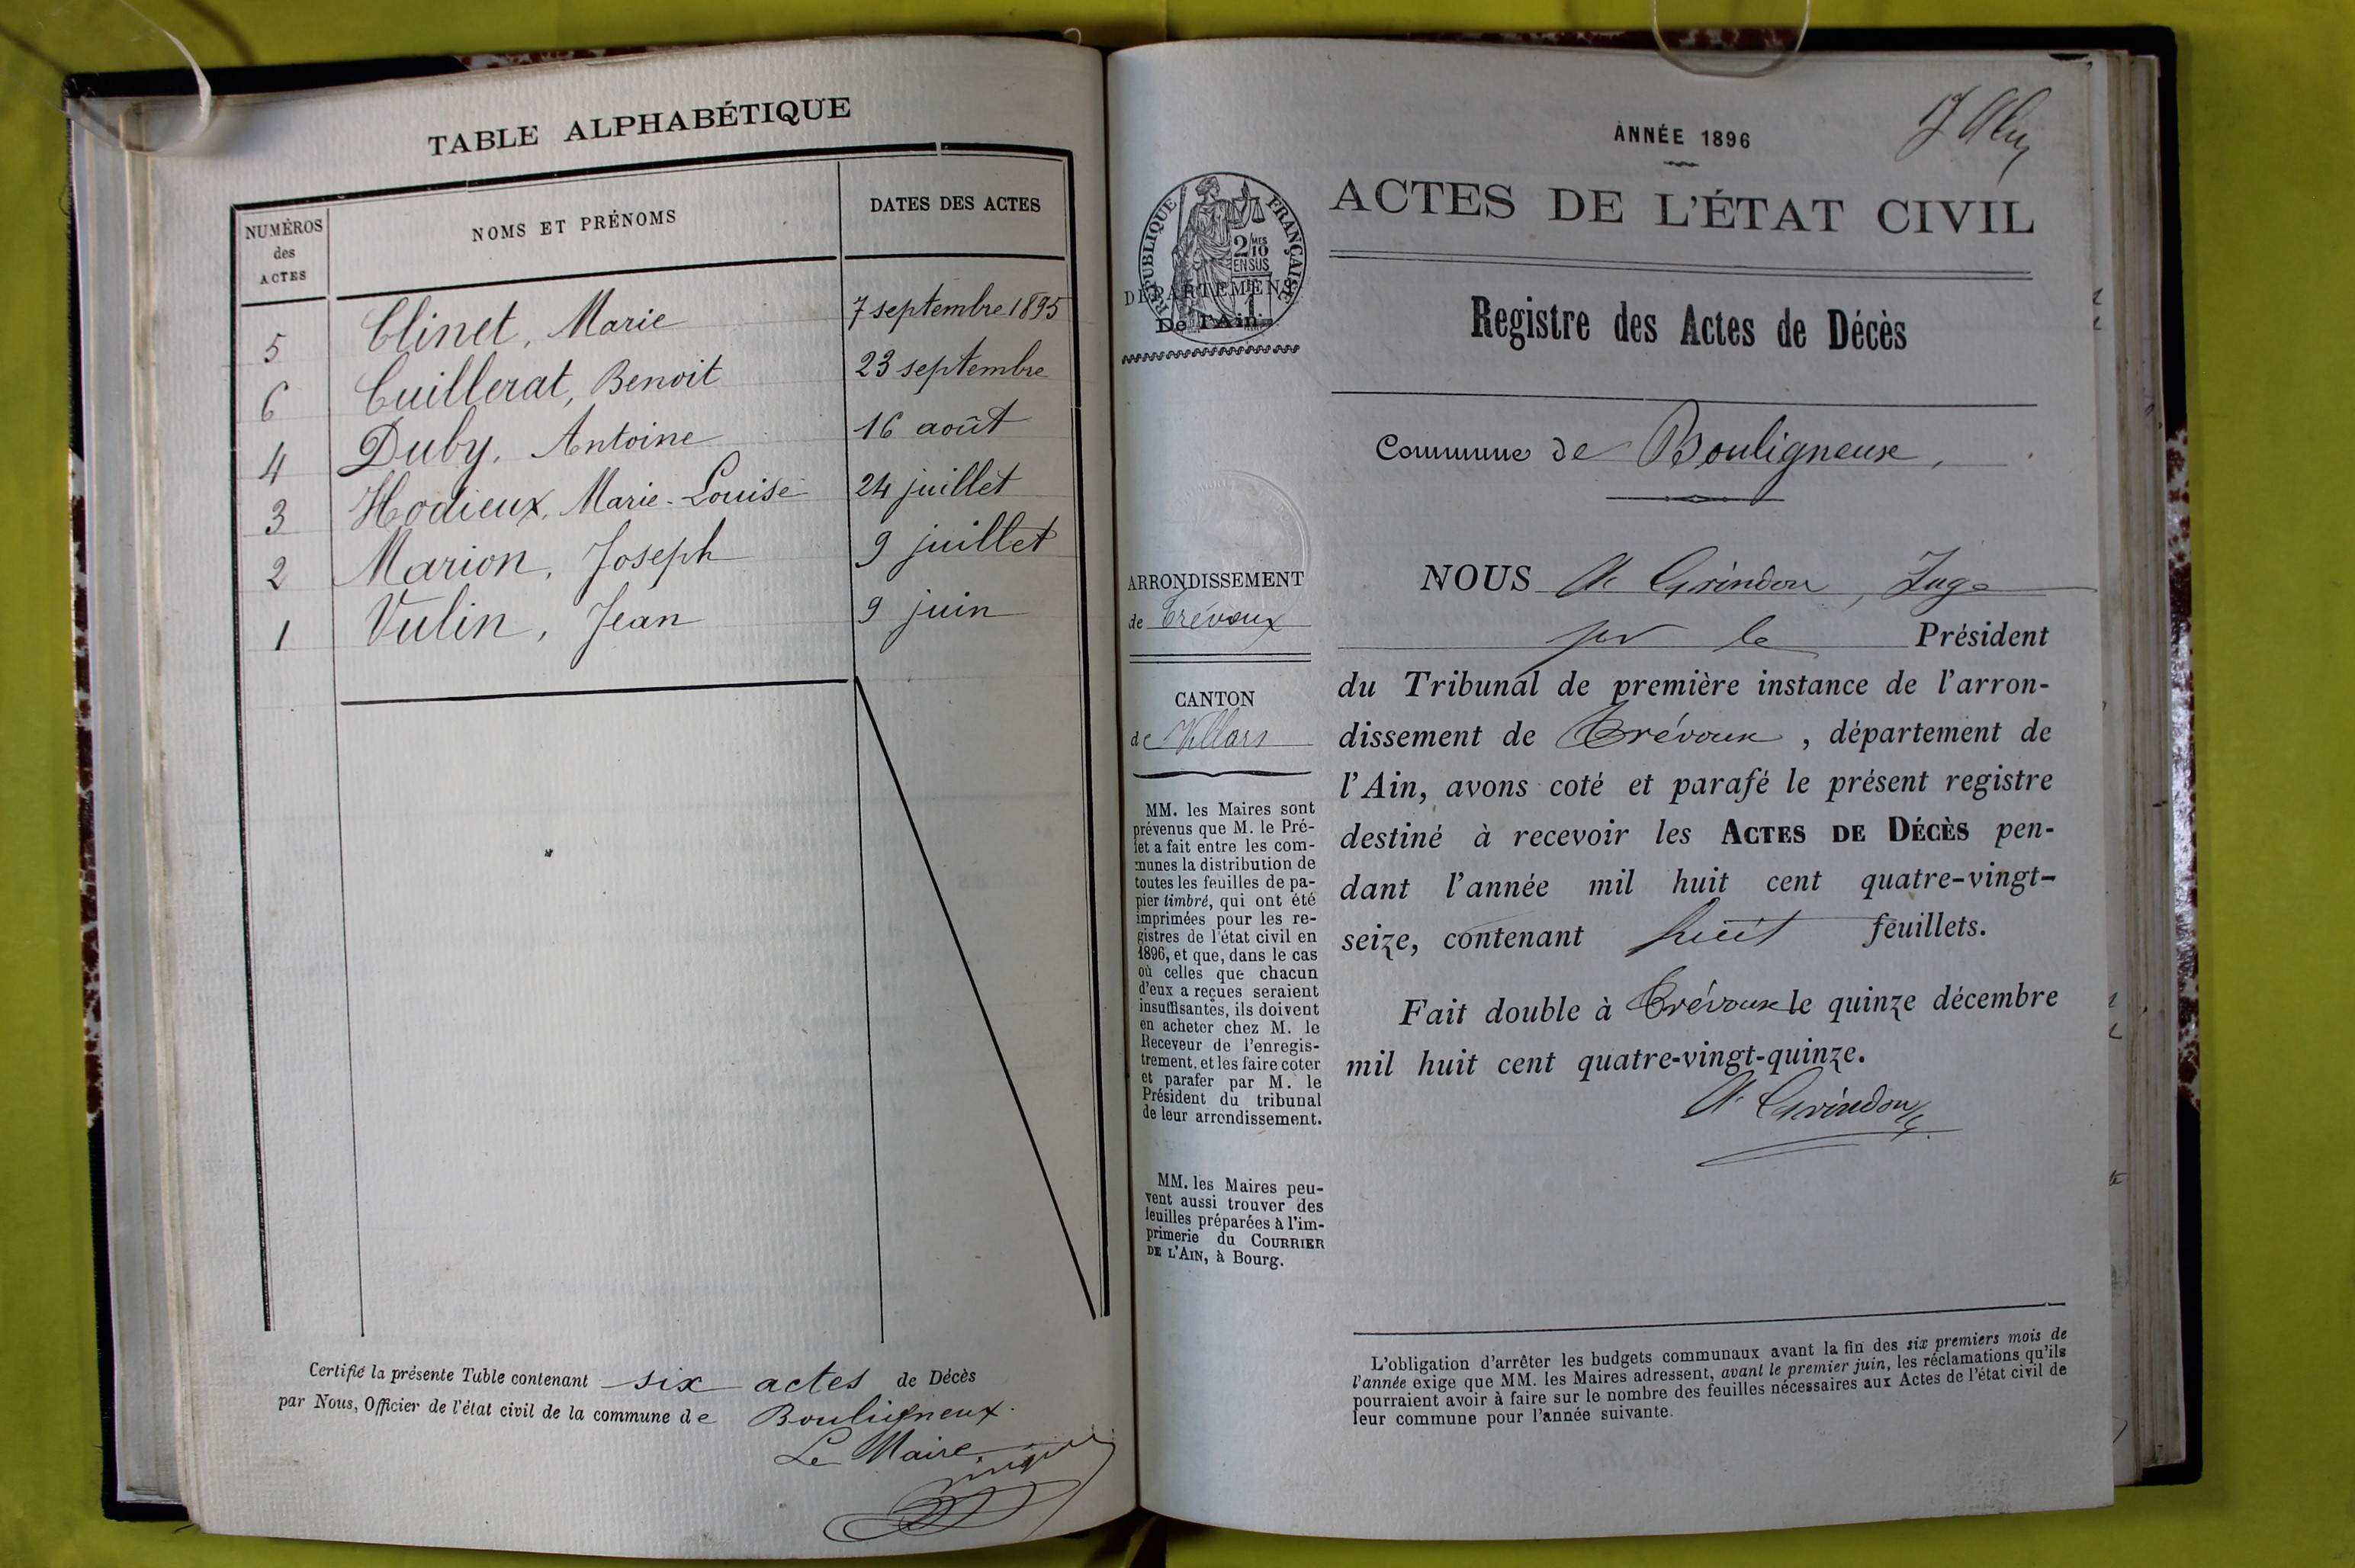 TABLE ALPHABÉTIQUE
NUMÉROS
des
ACTES
NOMS ET PRÉNOMS
DATES DES ACTES
5 Clinet, Marie 7 septembre 1895
6 Cuillerat, Benoit 23 septembre
4 Duby, Antoine 16 août
3 Hodieux, Marie-Louise 24 juillet
2 Marion, Joseph 9 juillet
1 Vulin, Jean 9 juin
Certifié la présente Table contenant six actes de Décès
par Nous, Officier de l'état civil de la commune de Bouligneux.
Le Maire
ANNÉE 1896
ACTES DE L'ÉTAT CIVIL
RÉPUBLIQUE FRANÇAISE
2/10 MES
EN SUS
DÉPARTEMENT
De l'Ain
Registre des Actes de Décès
Commune de Bouligneux,
ARRONDISSEMENT
de Trévoux
CANTON
de Villars
MM. les Maires sont
prévenus que M. le Pré-
fet a fait entre les com-
munes la distribution de
toutes les feuilles de pa-
pier timbré, qui ont été
imprimées pour les re-
gistres de l'état civil en
1896, et que, dans le cas
où celles que chacun
d'eux a reçues seraient
insuffisantes, ils doivent
en acheter chez M. le
Receveur de l'enregis-
trement, et les faire coter
et parafer par M. le
Président du tribunal
de leur arrondissement.
MM. les Maires peu-
vent aussi trouver des
feuilles préparées à l'im-
primerie du COURRIER
DE L'AIN, à Bourg.
NOUS A. Grindon, Juge
pr le Président
du Tribunal de première instance de l'arron-
dissement de Trévoux, département de
l'Ain, avons coté et parafé le présent registre
destiné à recevoir les ACTES DE DÉCÈS pen-
dant l'année mil huit cent quatre-vingt-
seize, contenant huit feuillets.
Fait double à Trévoux le quinze décembre
mil huit cent quatre-vingt-quinze.
A. Grindon
L'obligation d'arrêter les budgets communaux avant la fin des six premiers mois de
l'année exige que MM. les Maires adressent, avant le premier juin, les réclamations qu'ils
pourraient avoir à faire sur le nombre des feuilles nécessaires aux Actes de l'état civil de
leur commune pour l'année suivante.